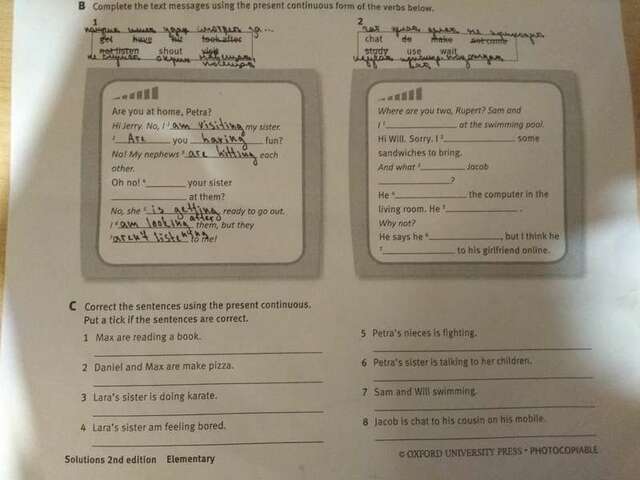 B Complete the text messages using the present continuous form of the verbs below.
1
get have hit look after
not listen shout visit
Are you at home, Petra?
Hi Jerry. No, I ¹ am visiting my sister.
² Are you having fun?
No! My nephews ³ are hitting each
other.
Oh no! ⁴ your sister
at them?
No, she ⁵ is getting ready to go out.
I ⁶ am looking after them, but they
⁷ aren't listening to me!
2
chat do make not come
study use wait
Where are you two, Rupert? Sam and
I ¹ at the swimming pool.
Hi Will. Sorry. I ² some
sandwiches to bring.
And what ³ Jacob
?
He ⁴ the computer in the
living room. He ⁵ .
Why not?
He says he ⁶ , but I think he
⁷ to his girlfriend online.
C Correct the sentences using the present continuous.
Put a tick if the sentences are correct.
1 Max are reading a book.
2 Daniel and Max are make pizza.
3 Lara's sister is doing karate.
4 Lara's sister am feeling bored.
5 Petra's nieces is fighting.
6 Petra's sister is talking to her children.
7 Sam and Will swimming.
8 Jacob is chat to his cousin on his mobile.
Solutions 2nd edition Elementary
© OXFORD UNIVERSITY PRESS • PHOTOCOPIABLE